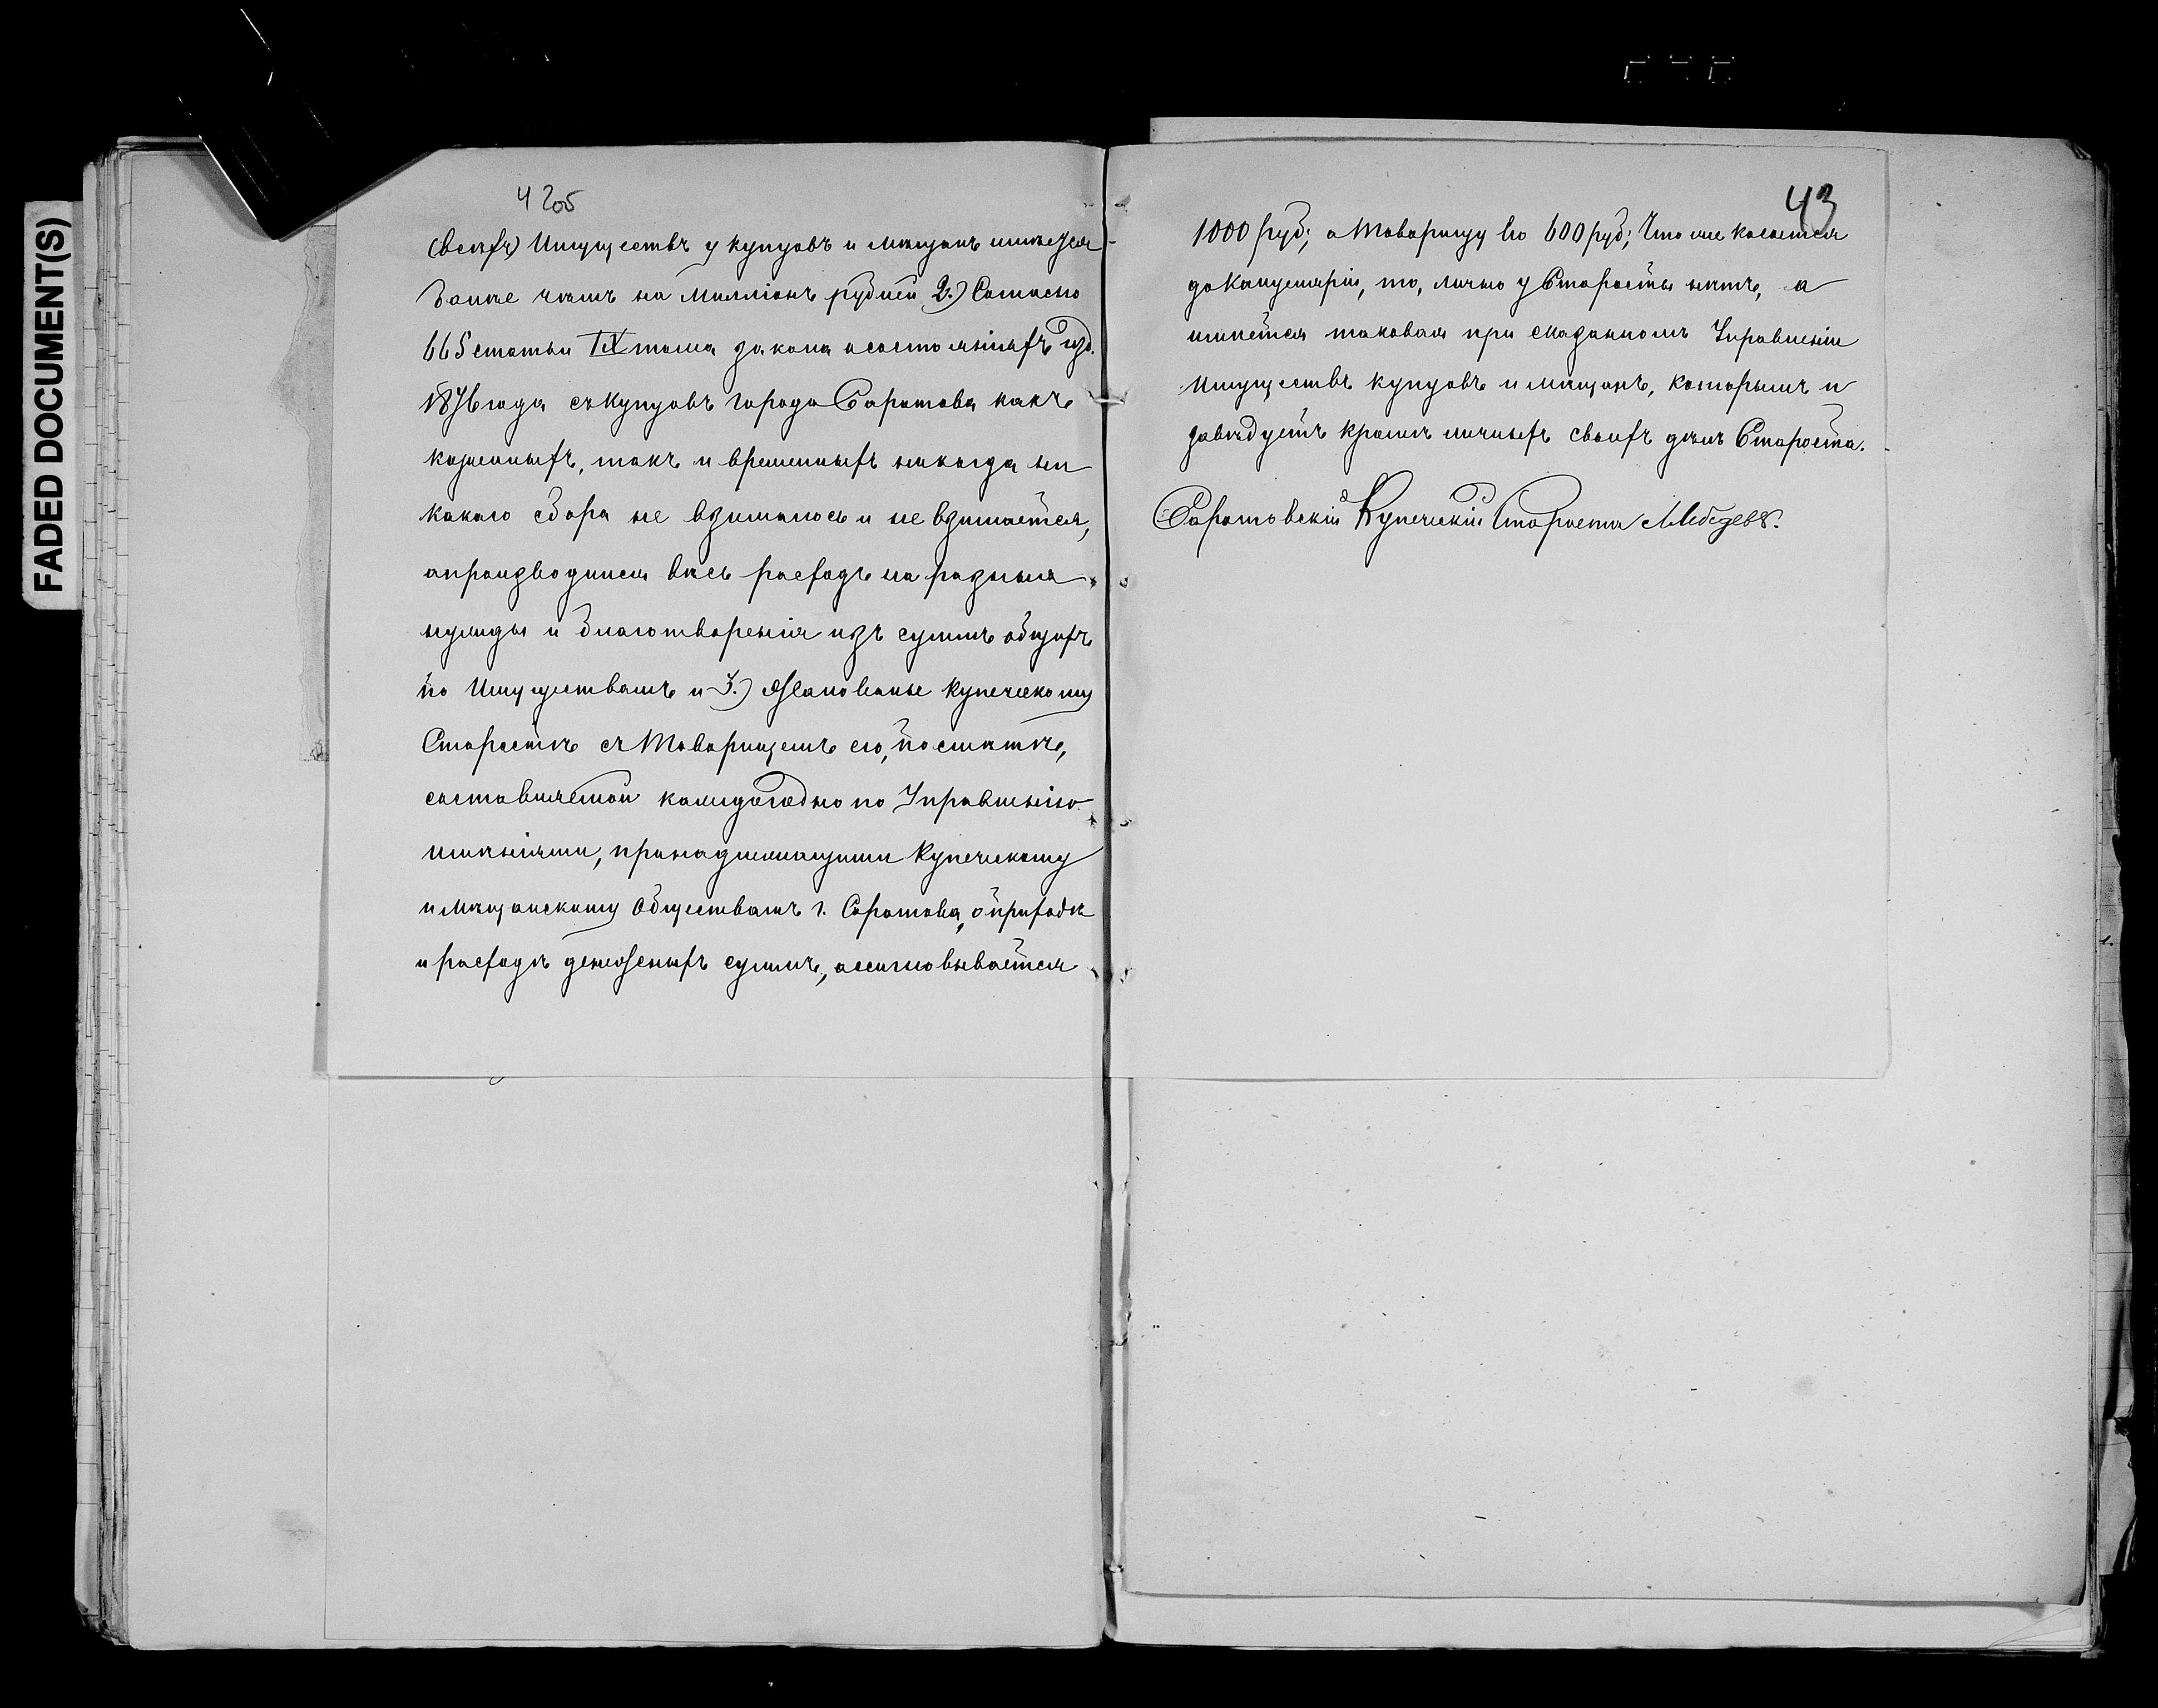 FADED DOCUMENT(S)
42об
(всѣхъ) Имуществъ у купцовъ и мѣщанъ имѣется
болѣе чѣмъ на Милліонъ рублей 2.) Согласно
665 статьи IX тома закона о состояніяхъ изд.
1876 года съ Купцовъ города Саратова какъ
коренныхъ, такъ и временныхъ никогда ни
какого сбора не взималось и не взимается,
а производится весь расходъ на разныя
нужды и благотворенія изъ суммъ общихъ
по Имуществамъ и 3.) Жалованье Купеческому
Старостѣ съ Товарищемъ его, по смѣтѣ,
составляемой каждогодно по Управленію
имѣніями, принадлежащими Купеческому
и Мѣщанскому Обществамъ г. Саратова, о приходѣ
и расходѣ денежныхъ суммъ, ассигновывается
43
1000 руб; а Товарищу во 600 руб; Что же касается
до Канцеляріи, то, лично у Старосты нѣтъ, а
имѣется таковая при сказанномъ Управленіи
Имуществъ купцовъ и мѣщанъ, которымъ и
завѣдуетъ кромѣ личныхъ своихъ дѣлъ Староста.
Саратовскій Купеческій Староста